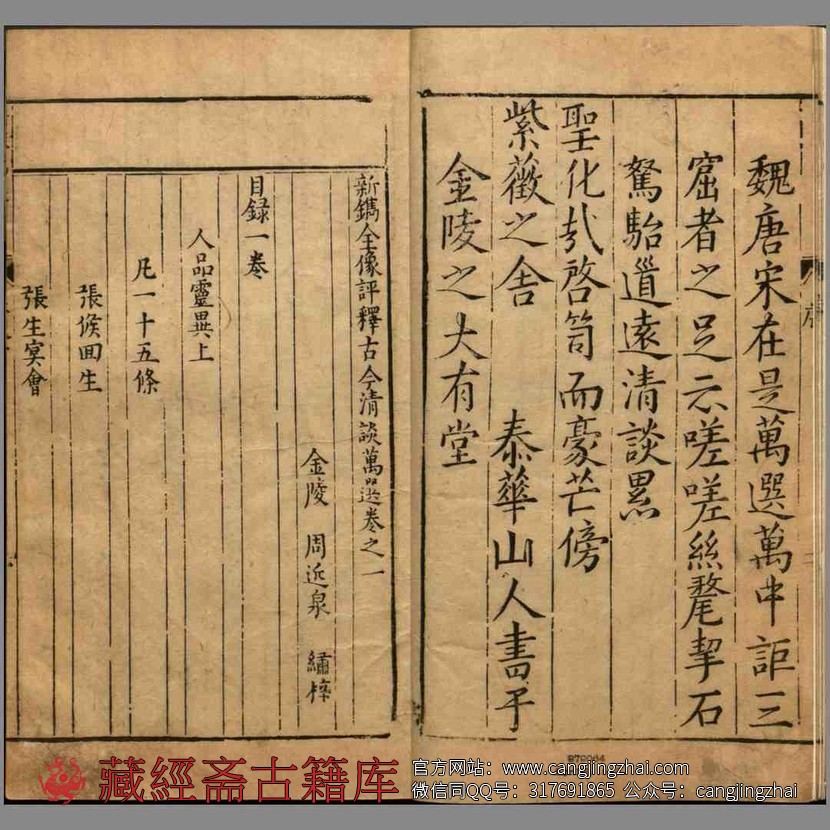 魏唐宋在是萬選萬中詎三
窟者之足云嗟嗟絲氂挈石
駑駘道遠清談累
聖化㢤啓笥而豪芒傍
紫薇之舍　泰華山人書于
金陵之大有堂
序
新鐫全像評釋古今清談萬選卷之一
金陵　周近泉　繡梓
目録一卷
人品靈異上
凡一十五條
張倏回生
張生冥會
藏經斋古籍库
官方网站：www.cangjingzhai.com
微信同QQ号：317691865 公众号：cangjingzhai